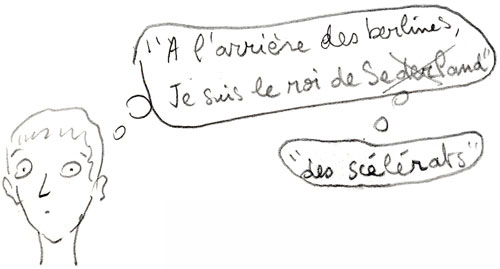 "A l'arrière des berlines,
Je suis le roi de Sederland"
"des scélérats"